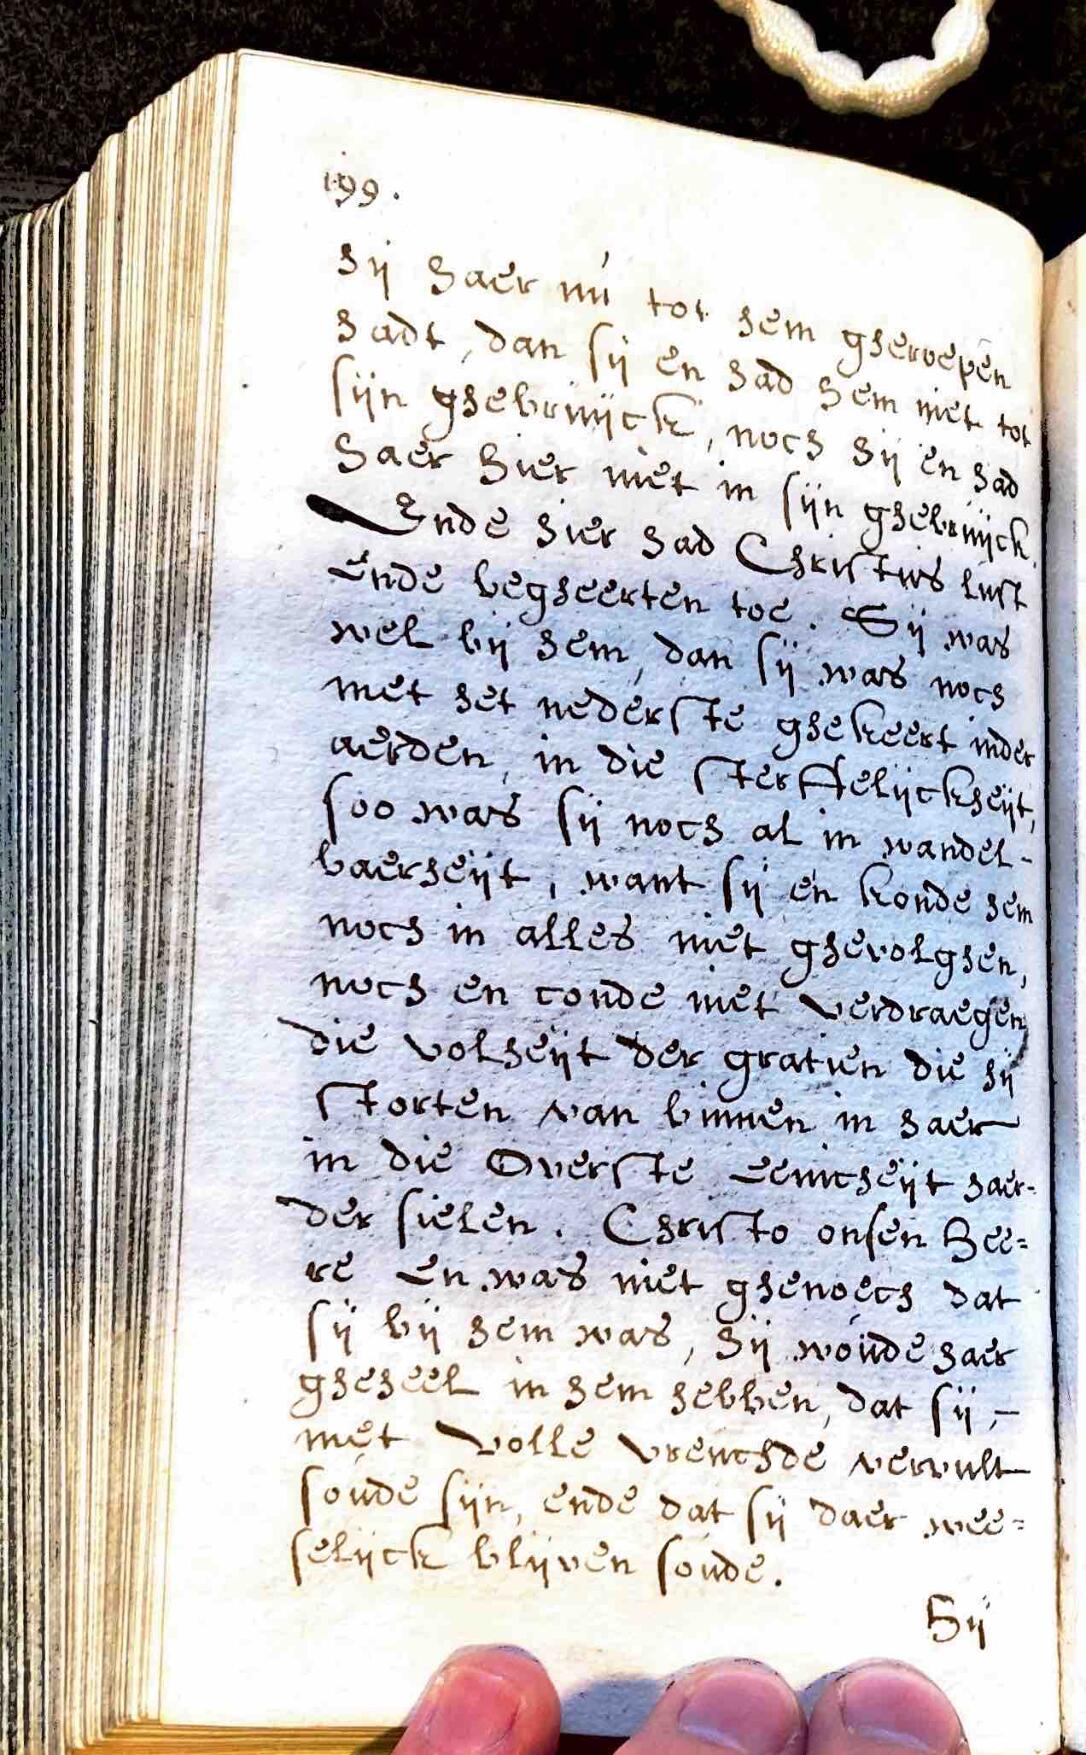 199.
hij haer nú tot hem gheroepen
hadt, dan sij en had hem niet tot
sijn ghebruijck, noch hij en had
haer hier niet in sijn ghebruijck.
Ende hier had Christus lust
ende begheerten toe. Sij was
wel bij hem, dan sij was noch
met het nederste ghekeert inder
aerden, in die sterffelijckheijt,
soo was sij noch al in wandel-
baerheijt, want sij en konde hem
noch in alles niet ghevolghen,
noch en conde niet verdraegen
die volheijt der gratien die hij
storten van binnen in haer
in die Overste Eenicheijt haer-
der sielen. Christo onsen Hee=
re en was niet ghenoech dat
sij bij hem was, hij woude haer
gheheel in hem hebben, dat sij -
met volle vreuchde vervult
soude sijn, ende dat sij daer wee=
selijck blijven soude.
Hij